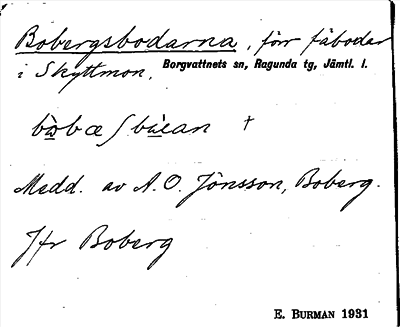 Bobergsbodarna, förr fäbodar
i Skyttmon, Borgvattnets sn, Ragunda tg, Jämtl. l.
Medd. av A. O. Jönsson, Boberg.
Jfr Boberg
E. BURMAN 1931